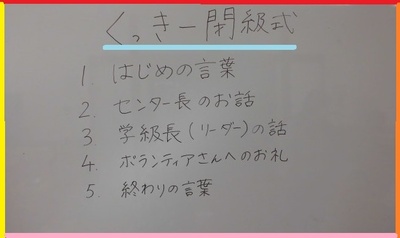 くっきー閉級式
1. はじめの言葉
2. センター長のお話
3. 学級長(リーダー)の話
4. ボランティアさんへのお礼
5. 終わりの言葉